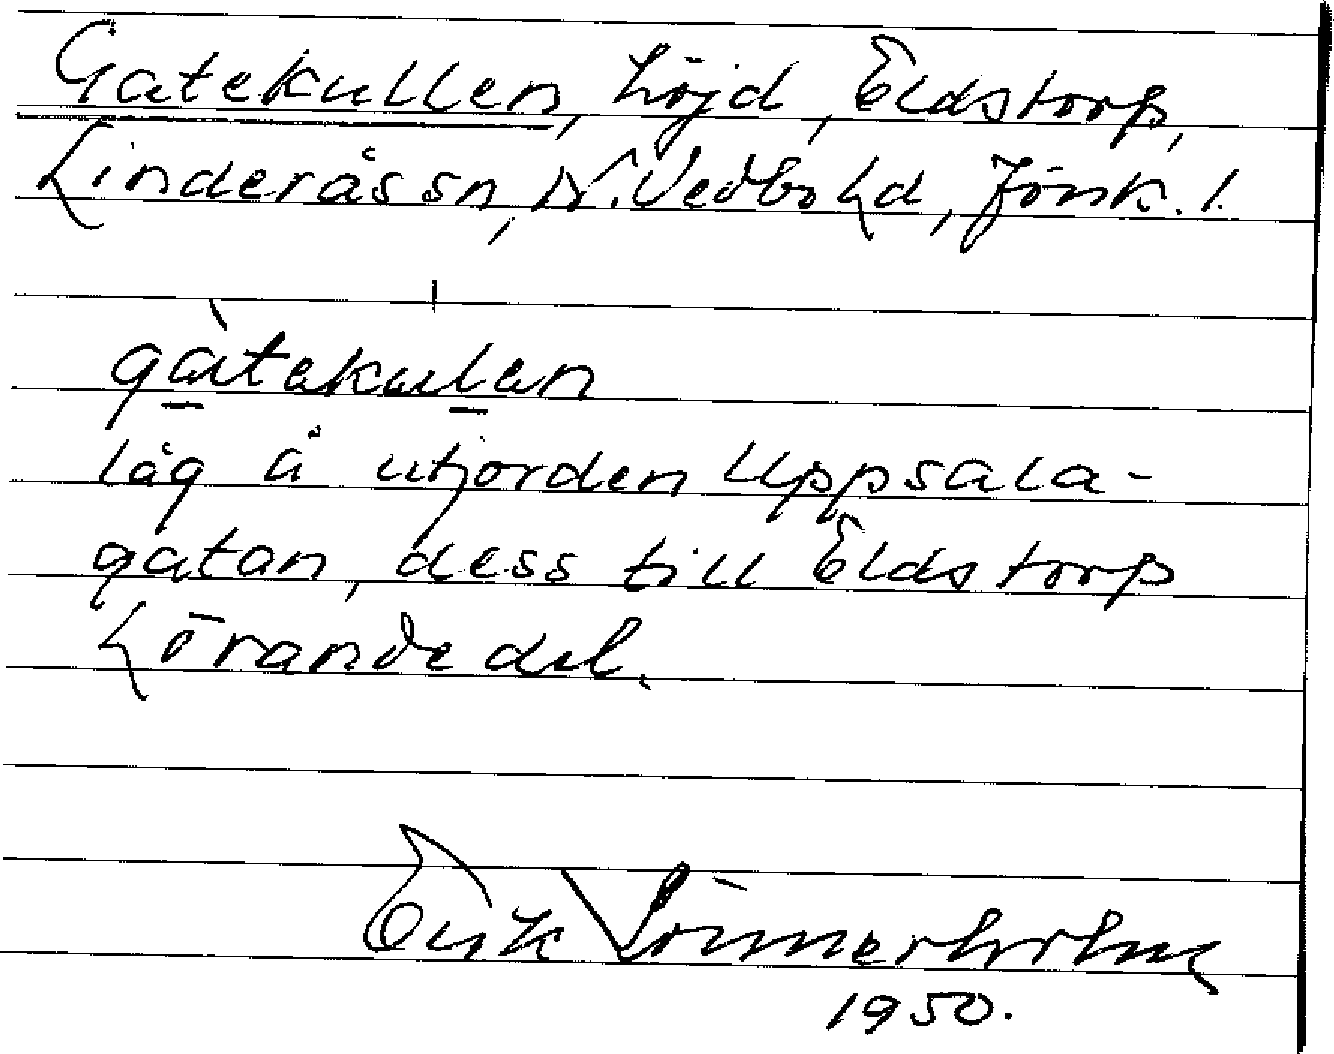 Gatekullen, höjd, Eldstorp,
Linderås sn, N. Vedbo hd, Jönk. l.
gàtakulan
låg å utjorden Uppsala-
gatan, dess till Eldstorp
hörande del.
Erik Sömmerholm
1950.